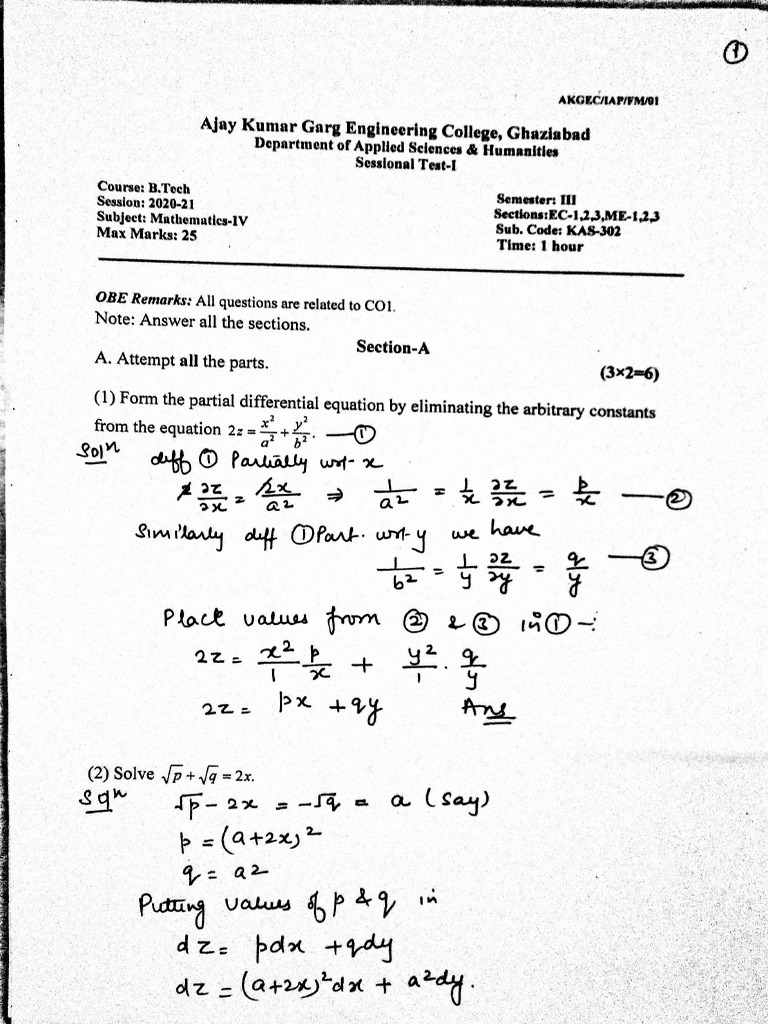 ①
AKGEC/IAP/FM/01
Ajay Kumar Garg Engineering College, Ghaziabad
Department of Applied Sciences & Humanities
Sessional Test-I
Course: B.Tech
Semester: III
Session: 2020-21
Sections:EC-1,2,3,ME-1,2,3
Subject: Mathematics-IV
Sub. Code: KAS-302
Max Marks: 25
Time: 1 hour
OBE Remarks: All questions are related to CO1.
Note: Answer all the sections.
Section-A
A. Attempt all the parts.
(3×2=6)
(1) Form the partial differential equation by eliminating the arbitrary constants
from the equation 2z = x²/a² + y²/b². —①
Solⁿ diff ① Partially wrt- x
2 ∂z/∂x = 2x/a² ⇒ 1/a² = 1/x ∂z/∂x = p/x —②
Similarly diff ① Part. wrt- y we have
1/b² = 1/y ∂z/∂y = q/y —③
Place values from ② & ③ in ① -:
2z = x²/1 p/x + y²/1 . q/y
2z = px + qy Ans
(2) Solve √p + √q = 2x.
Solⁿ √p - 2x = -√q = a (say)
p = (a+2x)²
q = a²
Putting values of p & q in
dz = pdx + qdy
dz = (a+2x)²dx + a²dy.